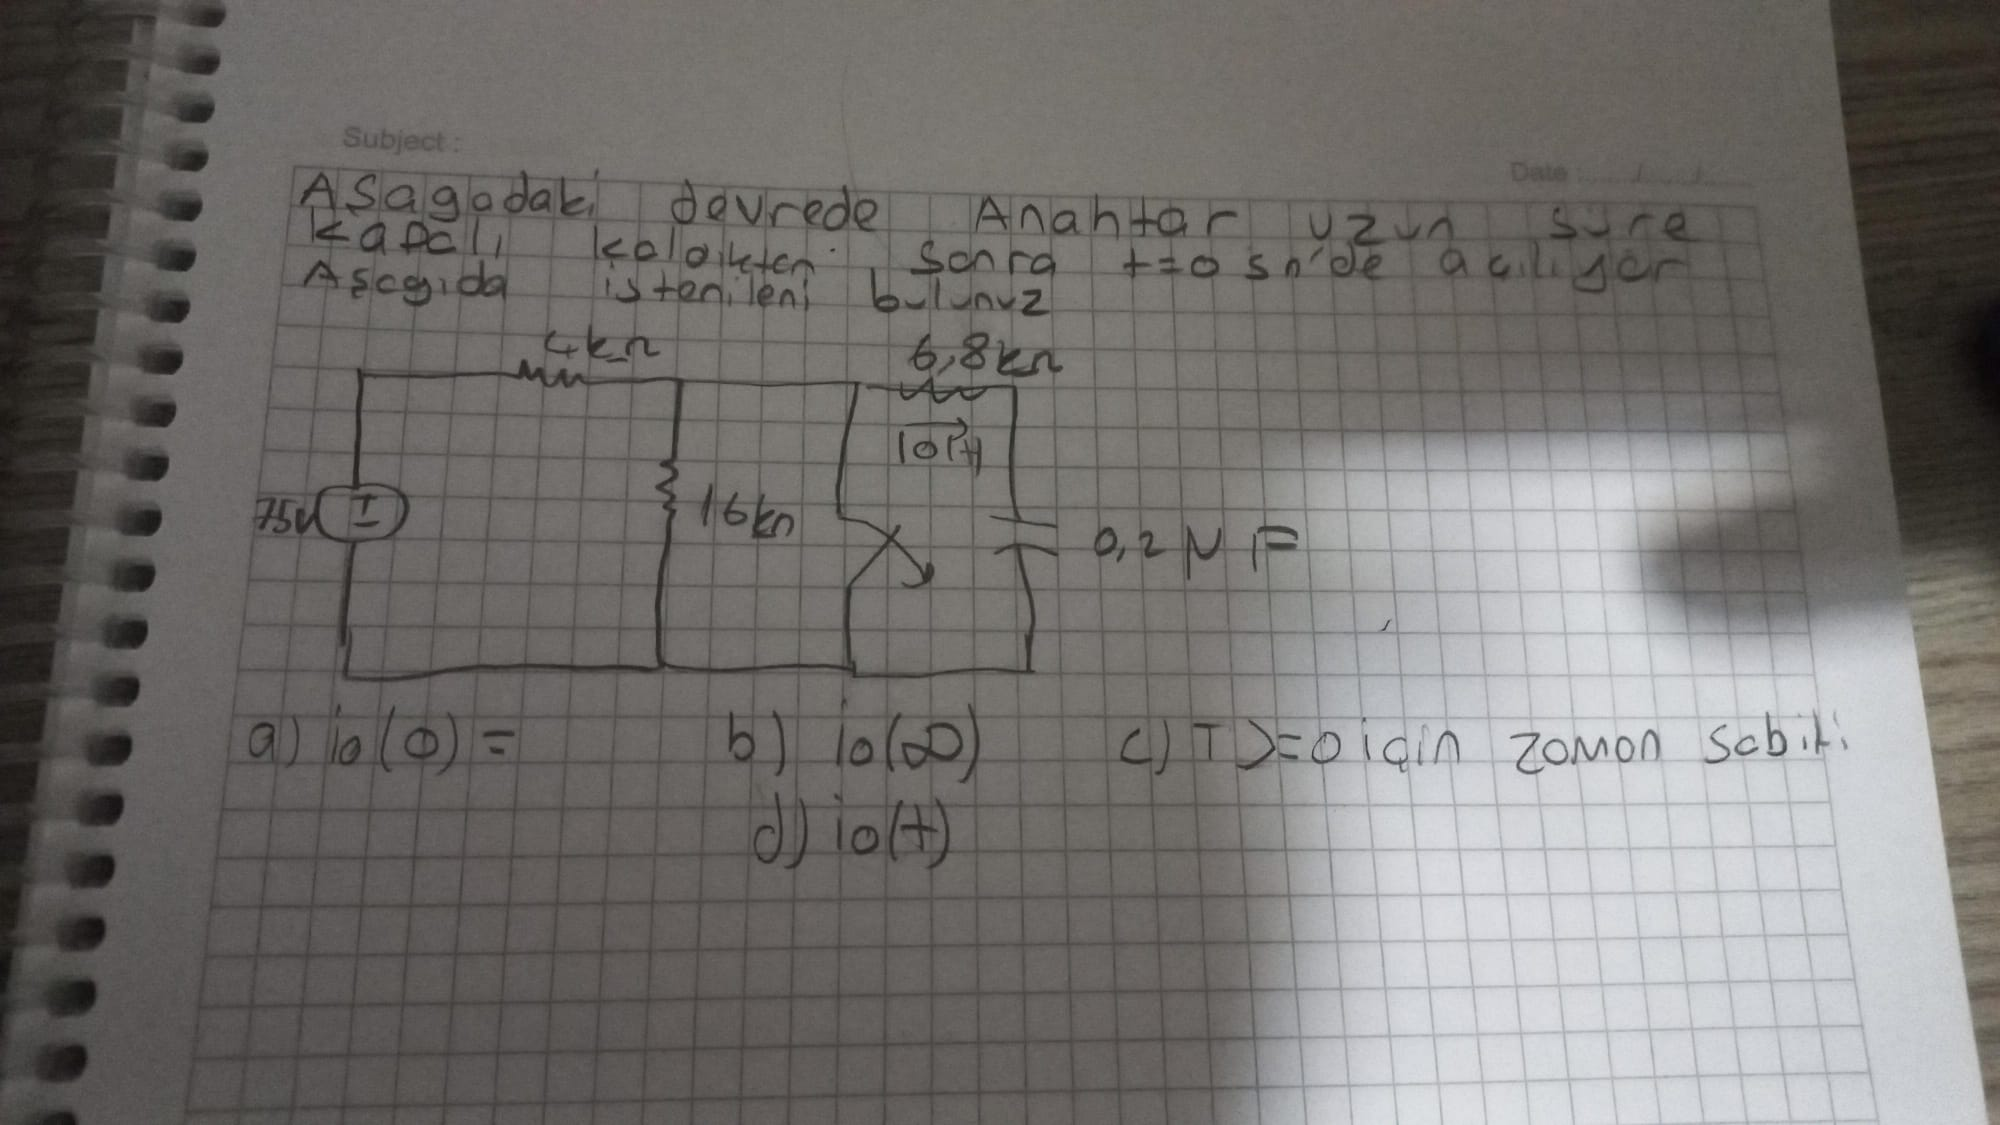 Subject :
Date : ...../...../.....
Aşagadaki devrede Anahtar uzun süre
Kapalı kaldıktan sonra t=0 sn'de açılıyor
Aşağıda istenileni bulunuz
4kΩ
6,8kΩ
io(t)
75v
16kΩ
0,2 μF
a) io(0) =
b) io(∞)
c) T>=0 için zaman sabiti
d) io(t)